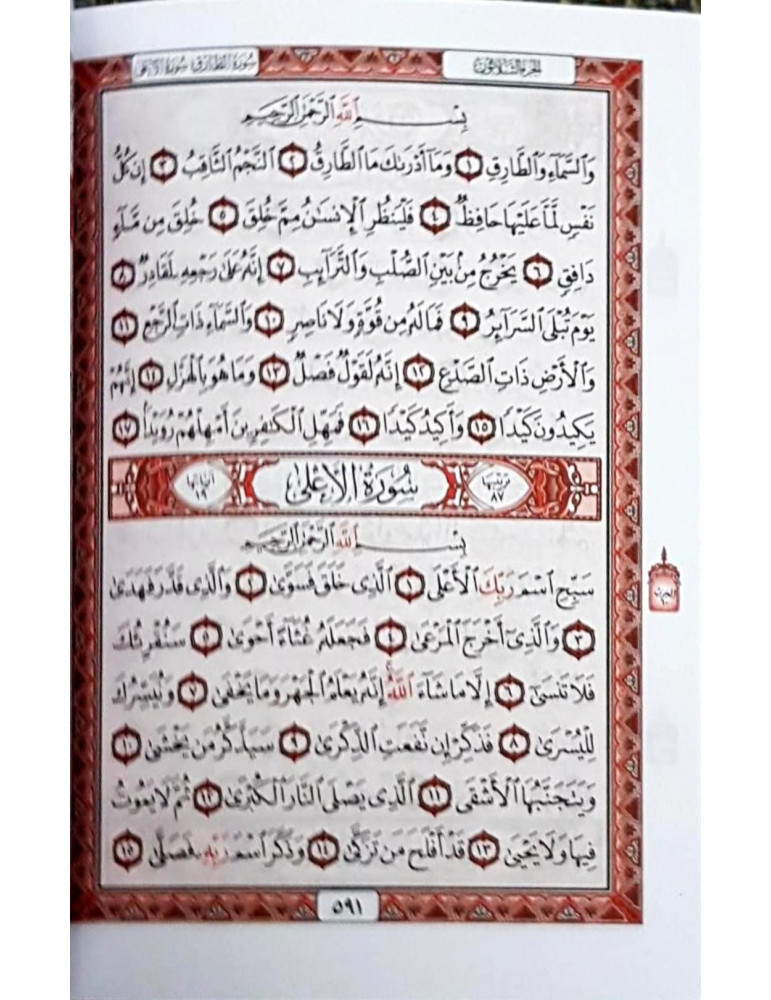 الجزء الثلاثون
سورة الطارق سورة الأعلى
بِسْمِ ٱللَّهِ ٱلرَّحْمَٰنِ ٱلرَّحِيمِ
وَٱلسَّمَآءِ وَٱلطَّارِقِ ١ وَمَآ أَدْرَىٰكَ مَا ٱلطَّارِقُ ٢ ٱلنَّجْمُ ٱلثَّاقِبُ ٣ إِن كُلُّ
نَفْسٍ لَّمَّا عَلَيْهَا حَافِظٌ ٤ فَلْيَنظُرِ ٱلْإِنسَٰنُ مِمَّ خُلِقَ ٥ خُلِقَ مِن مَّآءٍ
دَافِقٍ ٦ يَخْرُجُ مِنۢ بَيْنِ ٱلصُّلْبِ وَٱلتَّرَآئِبِ ٧ إِنَّهُۥ عَلَىٰ رَجْعِهِۦ لَقَادِرٌ ٨
يَوْمَ تُبْلَى ٱلسَّرَآئِرُ ٩ فَمَا لَهُۥ مِن قُوَّةٍ وَلَا نَاصِرٍ ١٠ وَٱلسَّمَآءِ ذَاتِ ٱلرَّجْعِ ١١
وَٱلْأَرْضِ ذَاتِ ٱلصَّدْعِ ١٢ إِنَّهُۥ لَقَوْلٌ فَصْلٌ ١٣ وَمَا هُوَ بِٱلْهَزْلِ ١٤ إِنَّهُمْ
يَكِيدُونَ كَيْدًا ١٥ وَأَكِيدُ كَيْدًا ١٦ فَمَهِّلِ ٱلْكَٰفِرِينَ أَمْهِلْهُمْ رُوَيْدًۢا ١٧
ترتيبها ٨٧
سُورَةُ الأَعْلَى
آياتها ١٩
بِسْمِ ٱللَّهِ ٱلرَّحْمَٰنِ ٱلرَّحِيمِ
سَبِّحِ ٱسْمَ رَبِّكَ ٱلْأَعْلَى ١ ٱلَّذِى خَلَقَ فَسَوَّىٰ ٢ وَٱلَّذِى قَدَّرَ فَهَدَىٰ
٣ وَٱلَّذِىٓ أَخْرَجَ ٱلْمَرْعَىٰ ٤ فَجَعَلَهُۥ غُثَآءً أَحْوَىٰ ٥ سَنُقْرِئُكَ
فَلَا تَنسَىٰٓ ٦ إِلَّا مَا شَآءَ ٱللَّهُ ۚ إِنَّهُۥ يَعْلَمُ ٱلْجَهْرَ وَمَا يَخْفَىٰ ٧ وَنُيَسِّرُكَ
لِلْيُسْرَىٰ ٨ فَذَكِّرْ إِن نَّفَعَتِ ٱلذِّكْرَىٰ ٩ سَيَذَّكَّرُ مَن يَخْشَىٰ ١٠
وَيَتَجَنَّبُهَا ٱلْأَشْقَى ١١ ٱلَّذِى يَصْلَى ٱلنَّارَ ٱلْكُبْرَىٰ ١٢ ثُمَّ لَا يَمُوتُ
فِيهَا وَلَا يَحْيَىٰ ١٣ قَدْ أَفْلَحَ مَن تَزَكَّىٰ ١٤ وَذَكَرَ ٱسْمَ رَبِّهِۦ فَصَلَّىٰ ١٥
٥٩١